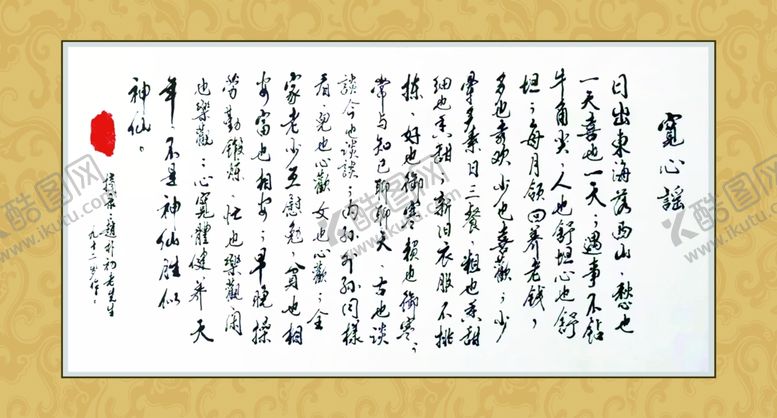 寬心謠
日出東海落西山、愁也
一天喜也一天；遇事不鉆
牛角尖、人也舒坦心也舒
坦；每月領回养老钱，
多也喜欢少也喜歡；少
荤多素日三餐、粗也香甜
细也香甜；新旧衣服不挑
拣、好也御寒赖也御寒；
常与知己聊聊天、古也谈
談今也谈談；内孙外孙同樣
看、兒也心歡女也心歡；全
家老少互慰勉、貧也相
安富也相安；早晚操
劳勤鍛鍊、忙也樂觀闲
也樂觀；心寬體健养天
年、不是神仙胜似
神仙。
趙朴初老先生
九十二岁作。
酷图网
www.ikutu.com